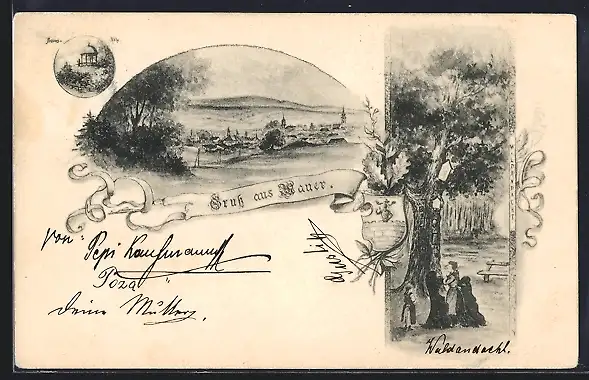 Gruß aus Mauer.
Von: Pepi Kaufmann
Poza
deine Mutter.
Waldandacht.